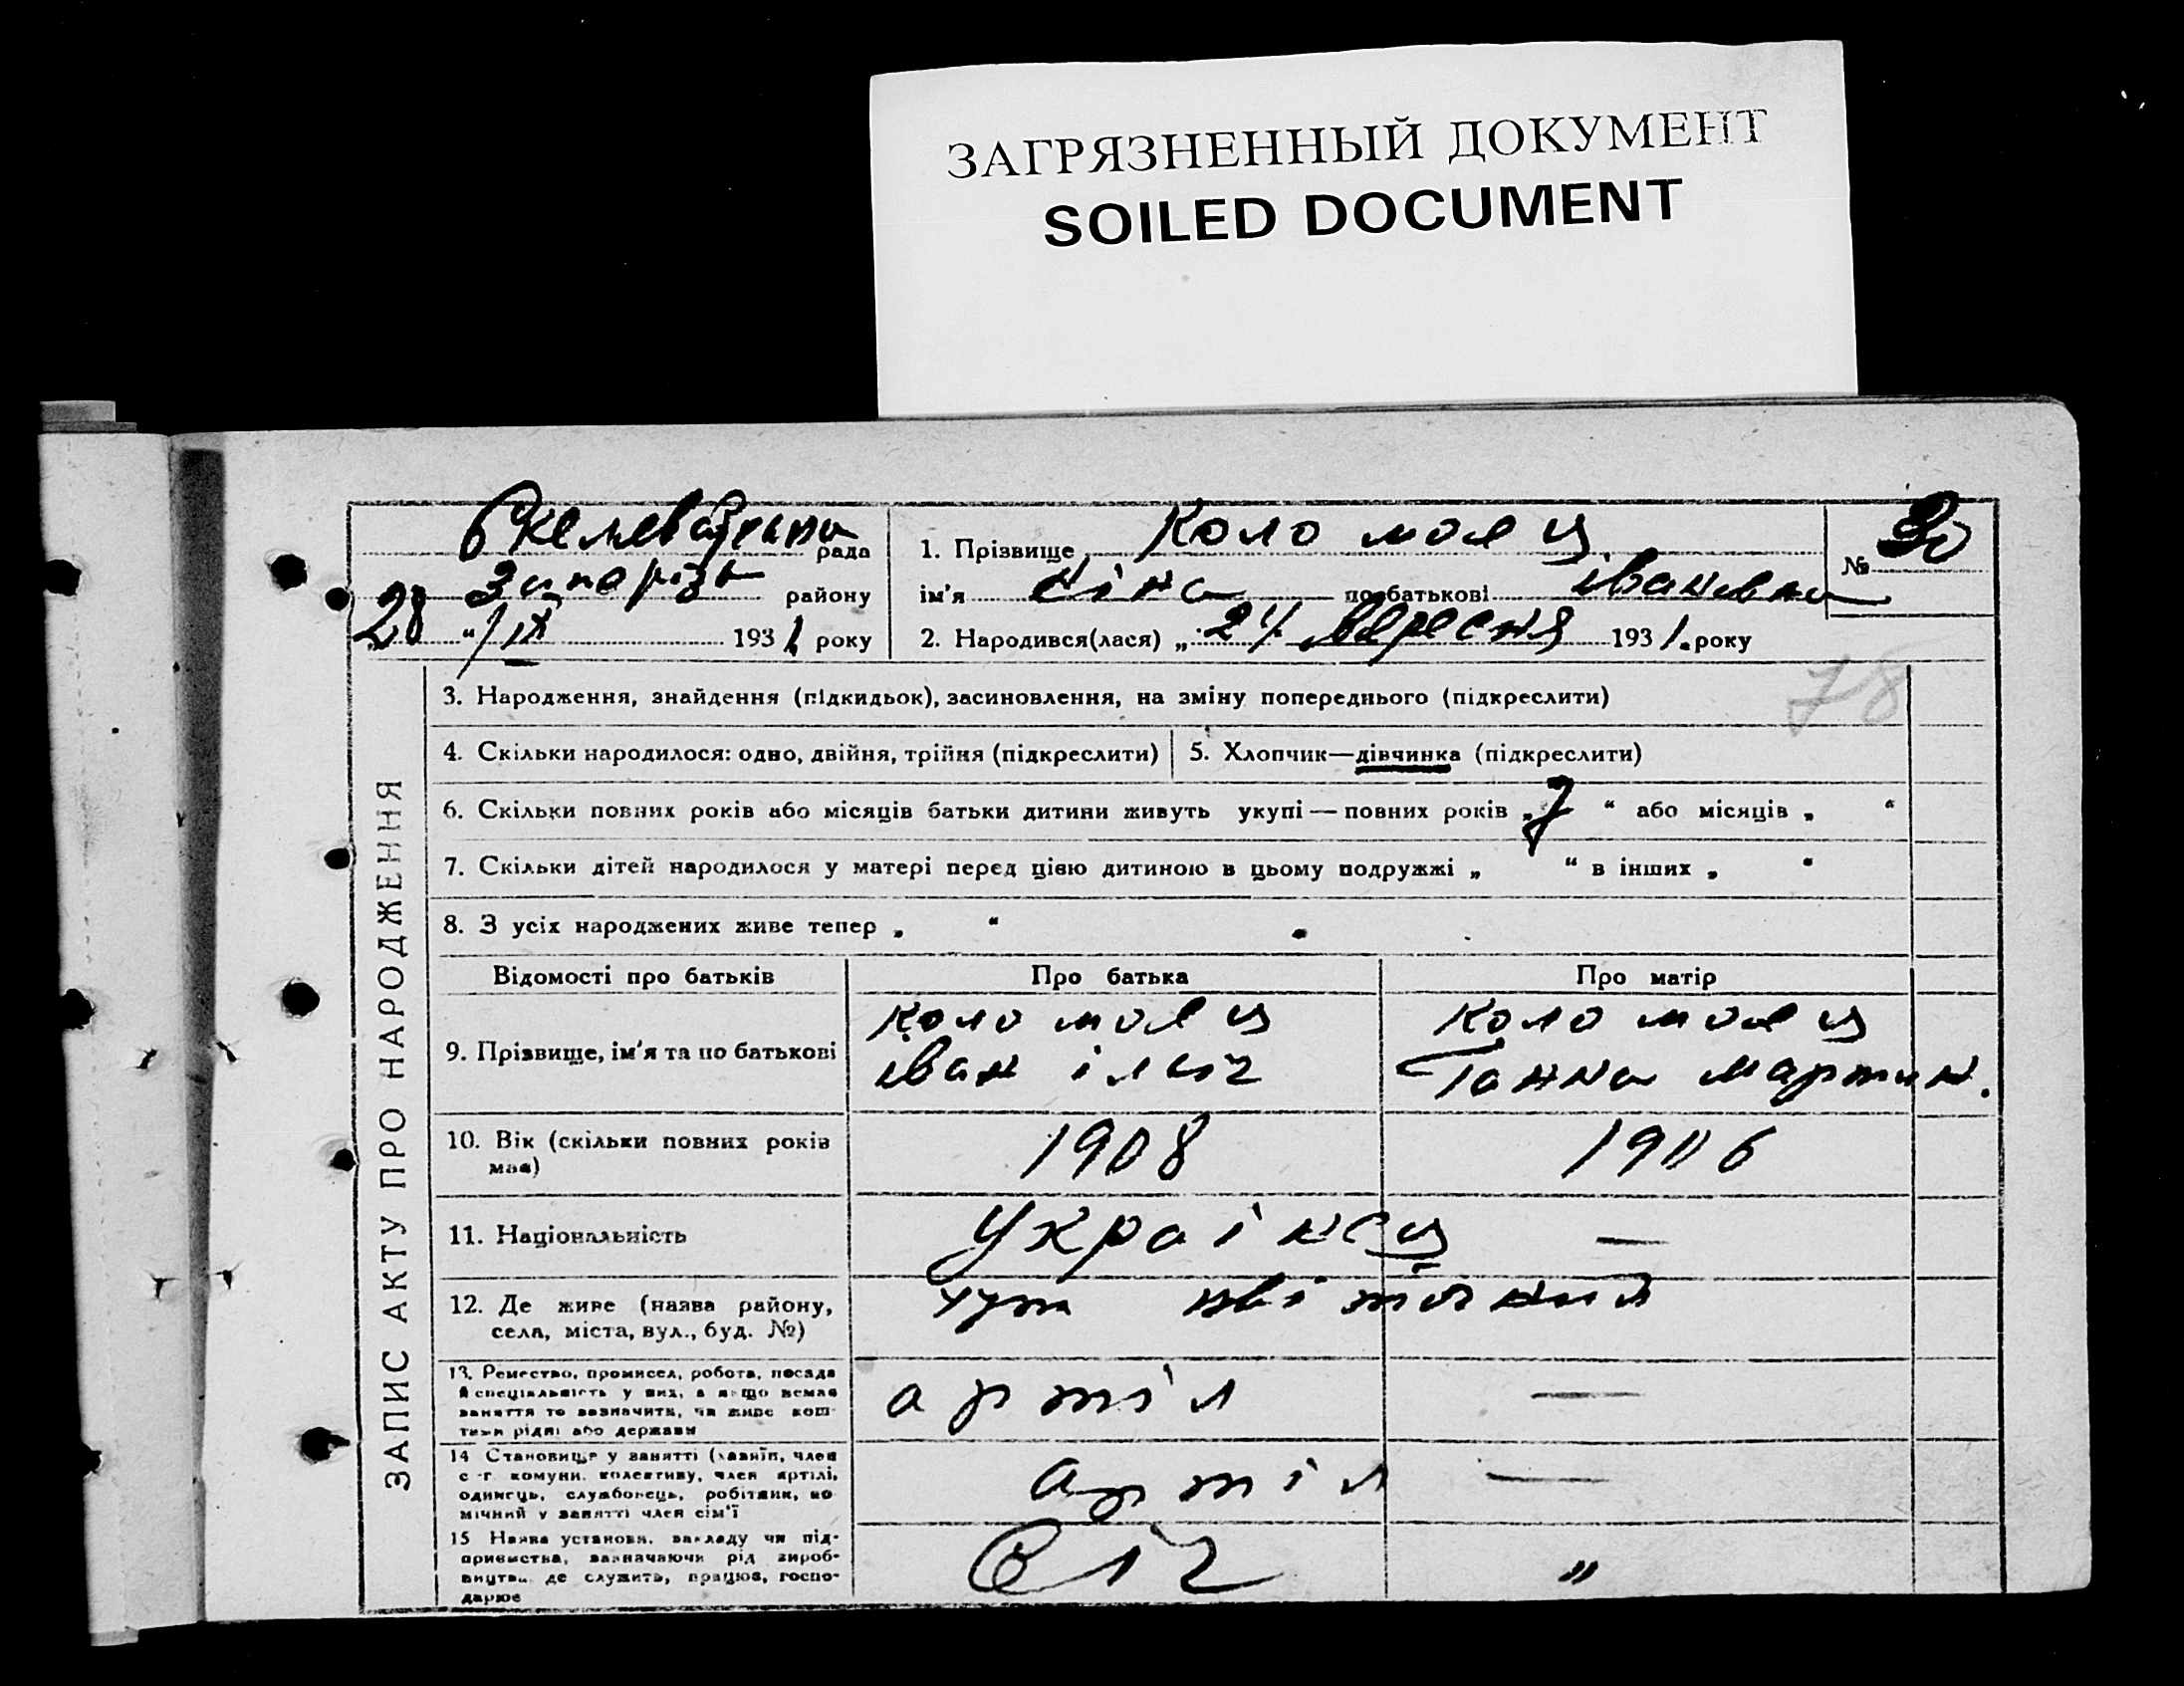 ЗАГРЯЗНЕННЫЙ ДОКУМЕНТ
SOILED DOCUMENT
Скелеватська рада
Запорізь району
28 "/IX 1931 року
1. Прізвище Коломоєц
ім'я Ніна по батькові івановна
2. Народився(лася) „24 вересня 1931. року
№ 30
78
ЗАПИС АКТУ ПРО НАРОДЖЕННЯ
3. Народження, знайдення (підкидьок), засиновлення, на зміну попереднього (підкреслити)
4. Скільки народилося: одно, двійня, трійня (підкреслити)
5. Хлопчик—дівчинка (підкреслити)
6. Скільки повних років або місяців батьки дитини живуть укупі — повних років „7 “ або місяців „ “
7. Скільки дітей народилося у матері перед цією дитиною в цьому подружжі „ “ в інших „ “
8. З усіх народжених живе тепер „ “
Відомості про батьків Про батька Про матір
9. Прізвище, ім'я та по батькові
Коломоєц
іван ілліч
Коломоєц
Ганна Мартин.
10. Вік (скільки повних років
має)
1908
1906
11. Національність
Українец
—
12. Де живе (назва району,
села, міста, вул., буд. №)
13. Ремество, промисел, робота, посада
й спеціяльність у них, а якщо немає
заняття то зазначити, чи живе кош-
тами рідні або держави
артіл
—
14 Становище у занятті (хазяїн, член
с.-г. комуни, колективу, член артілі,
одинець, службовець, робітник, по-
мічний у занятті член сім'ї
артіл
—
15 Назва установи, закладу чи під-
приємства, зазначаючи рід вироб-
ництва, де служить, працює, госпо-
дарює
Січ
"